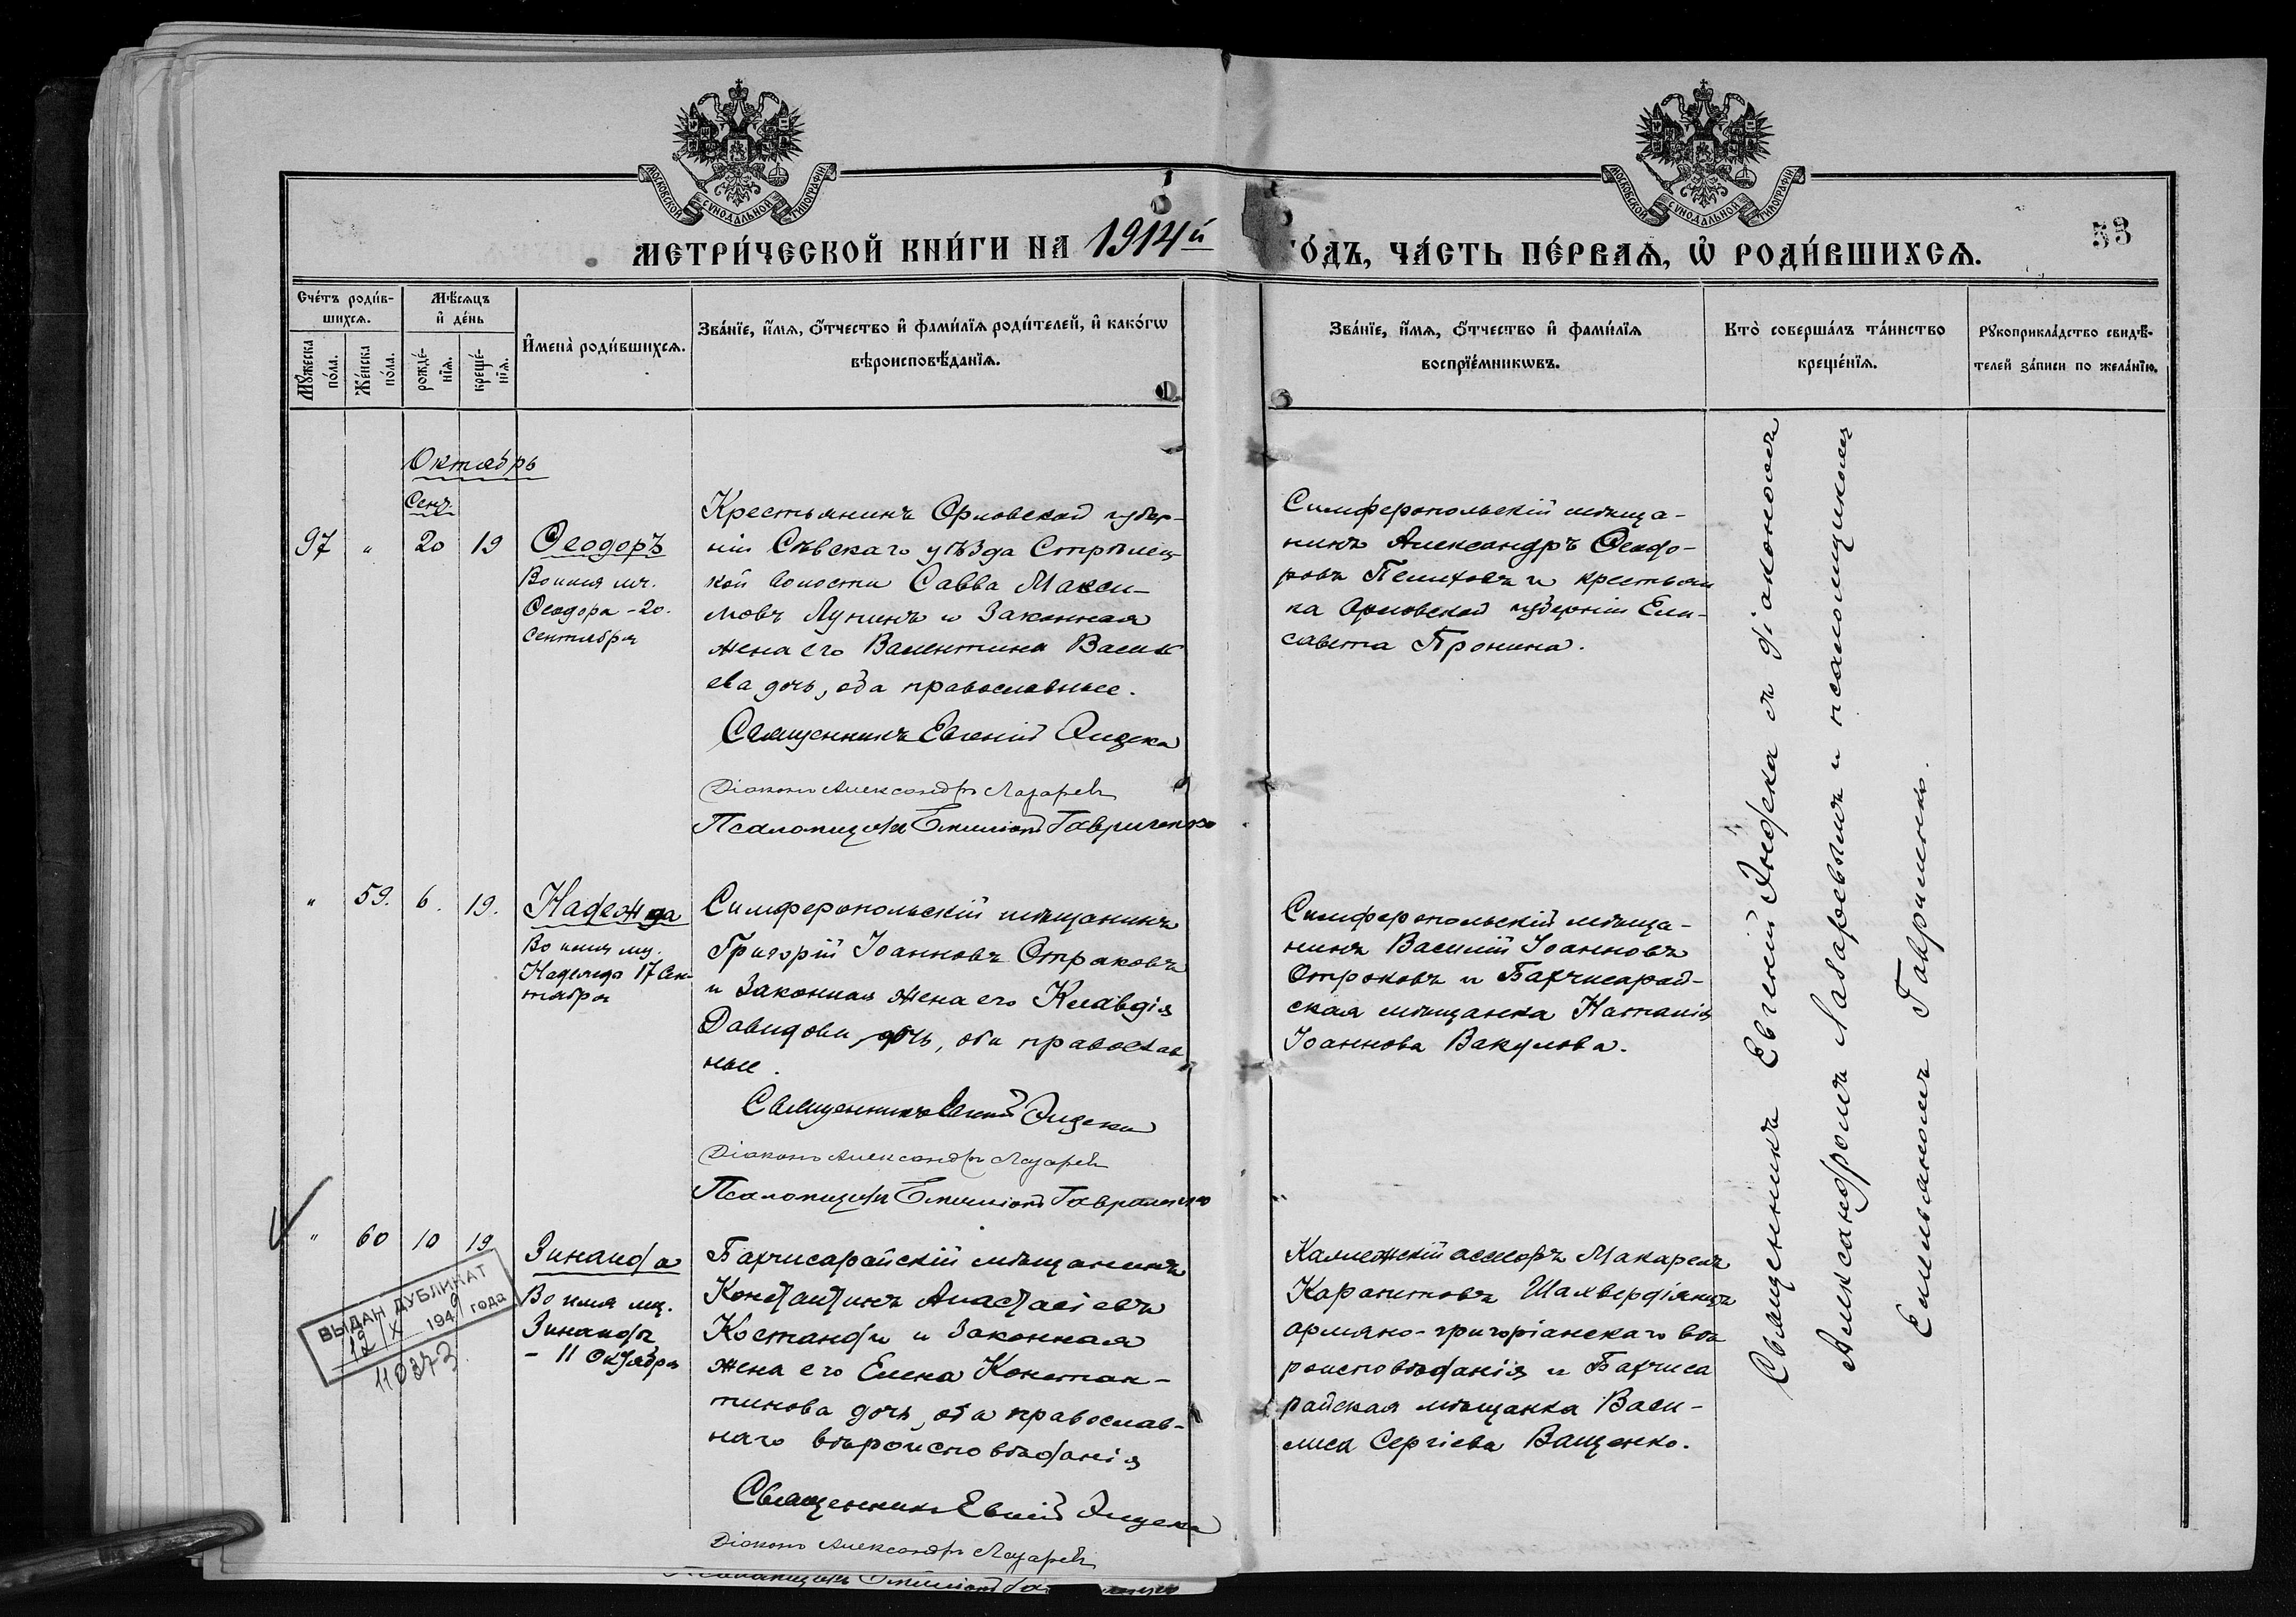 МОСКОВСКОЙ СУНОДАЛЬНОЙ ТИПОГРАФІИ
МОСКОВСКОЙ СУНОДАЛЬНОЙ ТИПОГРАФІИ
МЕТРИ́ЧЕСКОЙ КНИ́ГИ НА 1914й
ГО́ДЪ, ЧА́СТЬ ПЕ́РВАЯ, Ѡ РОДИ́ВШИХСЯ.
53
Сче́тъ роди́в-
шихся.
Мѣ́сяцъ
и де́нь
Мꙋжеска
по́ла.
Же́нска
по́ла.
рожде́-
нїя.
креще́-
нїя.
Имена̀ роди́вшихся.
Зва́нїе, и́мя, ѻ́тчество и фами́лїя роди́телей, и како́гѡ
вѣроисповѣ́данїя.
Зва́нїе, и́мя, ѻ́тчество и фами́лїя
воспрїе́мникѡвъ.
Кто̀ соверша́лъ та́инство
креще́нїя.
Рꙋкоприкла́дство свидѣ́-
телей за́писи по жела́нїю.
Октябрь
Сент.
97 " 20 19
Ѳеодоръ
Во имя мч.
Ѳеодора - 20.
Сентября
Крестьянинъ Орловской губер-
ніи Сѣвскаго уѣзда Стрѣлец-
кой волости Савва Макси-
мовъ Лунинъ и законная
жена его Валентина Васил
ева дочь, оба православные.
Священникъ Евгеній Эндека
Діаконъ Александръ Лазаревъ
Псаломщикъ Емиліанъ Гавриленко
Симферопольскій мѣща-
нинъ Александръ Ѳеодо-
ровъ Пелиховъ и крестьян
ка Орловской губерніи Ели-
савета Пронина.
" 59. 6. 19.
Надежда
Во имя мц.
Надежда 17 Сен-
тября
Симферопольскій мѣщанинъ
Григорій Іоанновъ Отраковъ
и законная жена его Клавдія
Давидова дочь, оба православ
ные.
Священникъ Евгеній Эндека
Діаконъ Александръ Лазаревъ
Псаломщикъ Емиліанъ Гавриленко
Симферопольскій мѣща-
нинъ Василій Іоанновъ
Отроковъ и Бахчисарай-
ская мѣщанка Наталія
Іоаннова Вакулова.
" 60 10 19
Зинаида
Во имя мц.
Зинаиды
- 11 Октября
ВЫДАН ДУБЛИКАТ
12/X 1949 года
110373
Бахчисарайскій мѣщанинъ
Константинъ Анастасіевъ
Костанди и законная
жена его Елена Констан-
тинова дочь, оба православ-
наго вѣроисповѣданія
Священникъ Евгеній Эндека
Діаконъ Александръ Лазаревъ
Псаломщикъ Емиліанъ
Коллежскій асессоръ Макарелъ
Карапитовъ Шахвердіянцъ
армяно-григоріанскаго вѣ
роисповѣданія и Бахчиса
райская мѣщанка Васи-
лиса Сергіева Ващенко.
Священникъ Евгеній Эндека съ діакономъ
Александромъ Лазаревымъ и псаломщикомъ
Емиліаномъ Гавриленко.